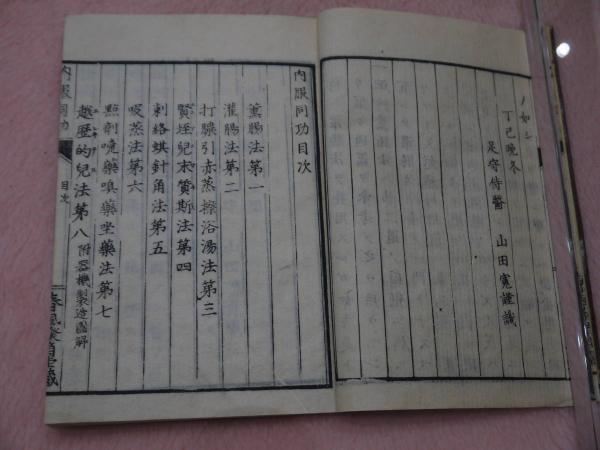 ノ如シ
丁巳晩冬
足守侍醫 山田寛謹識
内服同功目次
薫腸法第一
灌腸法第二
打膿引赤蒸擦浴湯法第三
賢垤兒末質斯法第四
刺絡蜞針角法第五
吸蒸法第六
點剤嚏藥嗅藥坐藥法第七
越歴的兒法第八 附器機製造圖解
内服同功
目次